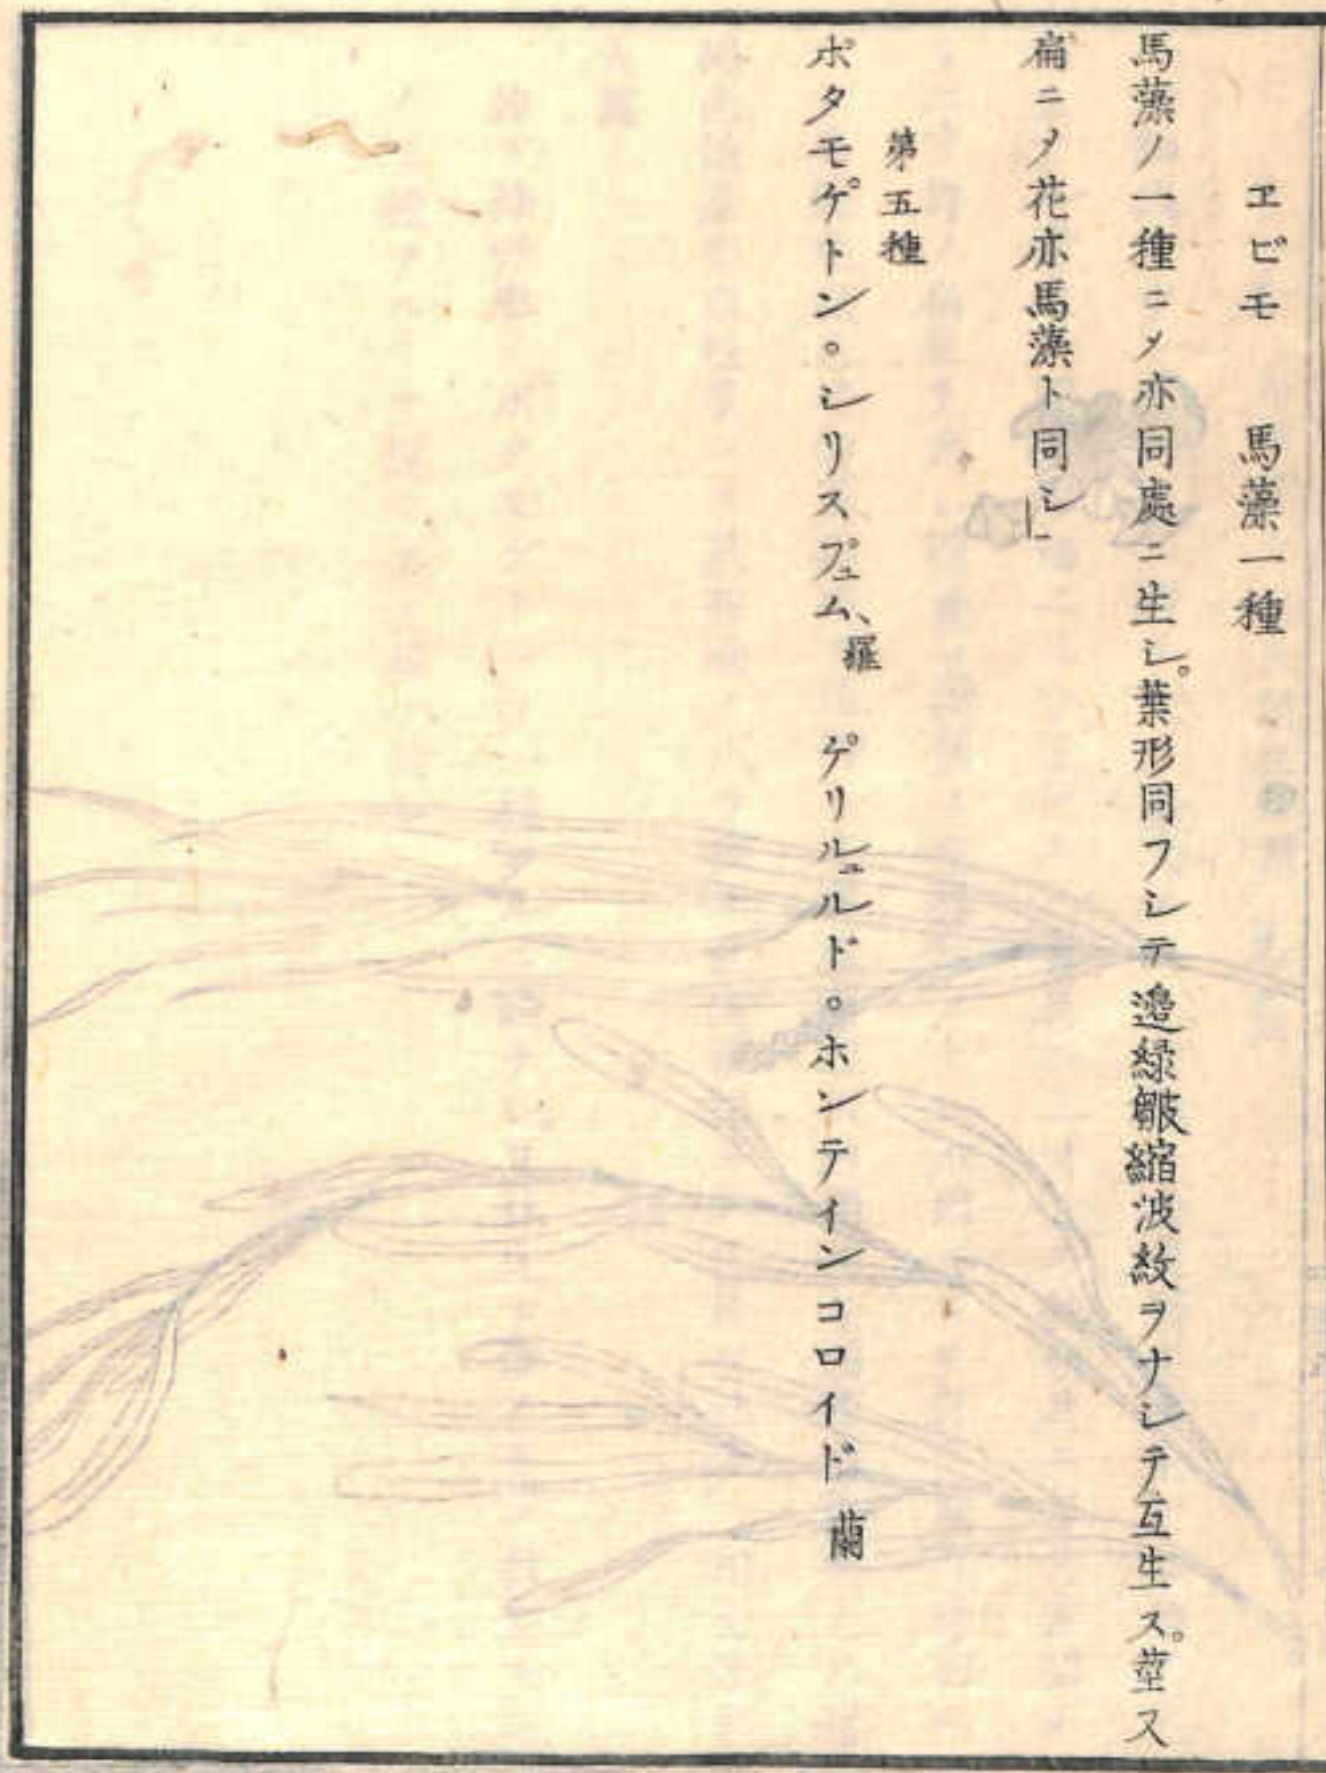 ヱビモ　馬藻一種
馬藻ノ一種ニメ亦同處ニ生シ。葉形同フシテ邊緑皺縮波紋ヲナシテ互生ス。莖ス
扁ニメ花亦馬藻ト同シ
第五種
ポタモゲトン。シリスプュム、羅　ゲリルュルド。ホンテインコロイド　蘭